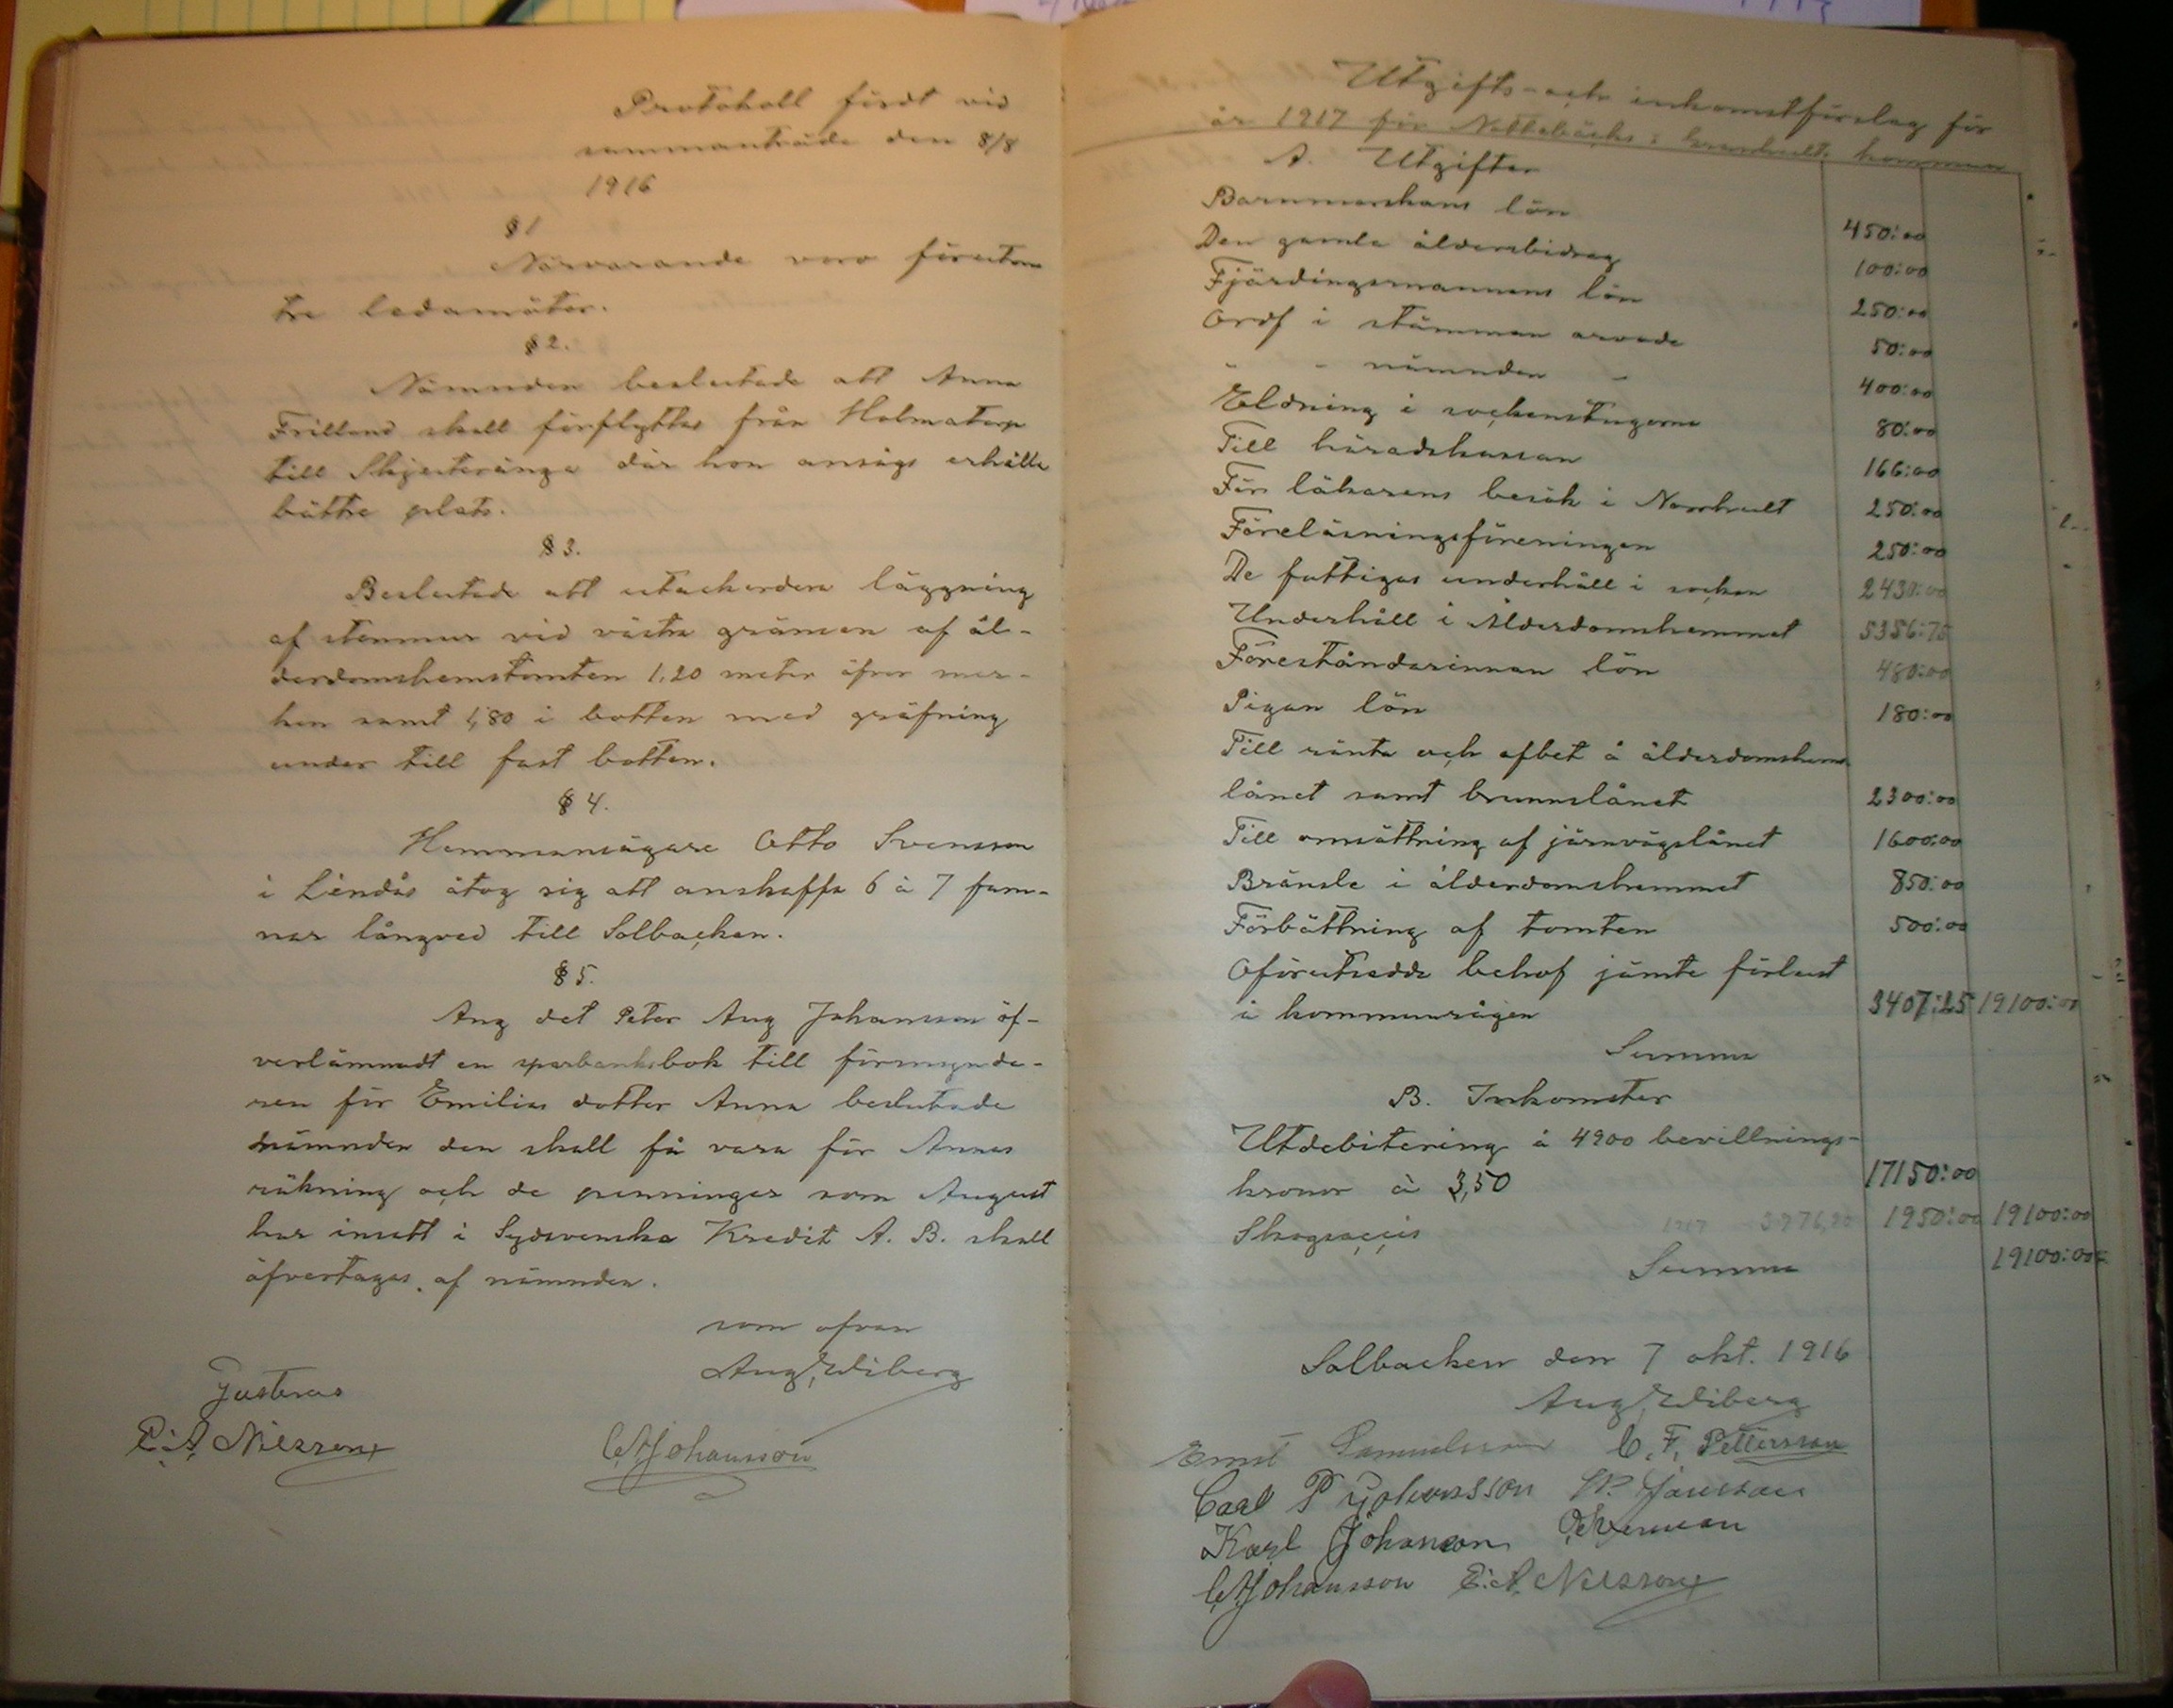 Protokoll fördt vid
sammanträde den 8/8
1916
§ 1
Närvarande voro förutom
tre ledamöter.
§ 2.
Nämnden beslutade att Anna
Frillend skall förflyttas från Holmatorp
till Skjutevånga där hon ansågs erhålla
bättre plats.
§ 3.
Beslutade att utackordera läggning
af stenmur vid västra gränsen af ål-
derdomshemstomten 1,20 meter öfver mar-
ken samt 1,80 i botten med gräfning
under till fast botten.
§ 4.
Hemmansägare Otto Svensson
i Lindås åtog sig att anskaffa 6 à 7 fam-
nar långved till Solbacken.
§ 5.
Ang det Peter Aug Johansson öf-
verlämnadt en sparbanksbok till förmynda-
ren för Emilias dotter Anna beslutade
nämnden den skall få vara för Annas
räkning och de penningar som August
har insatt i Sydsvenska Kredit A. B. skall
öfvertagas af nämnden.
som ofvan
Aug. Wiberg
Justeras
E. A. Nilsson
C A Johansson
Utgifts- och inkomstförslag för
år 1917 för kommun
A. Utgifter
Barnmorskans lön 450:00
Den gamla åldersbidrag 100:00
Fjärdingsmannens lön 250:00
Ordf i stämman arvode 50:00
" " nämnden " 400:00
Eldning i sockenstugorna 80:00
Till häradskassan 166:00
För läkarens besök i Norrhult 250:00
Föreläsningsföreningen 250:00
De fattigas underhåll i socken 2430:00
Underhåll i Ålderdomshemmet 5356:75
Föreståndarinnan lön 480:00
Pigan lön 180:00
Till ränta och afbet å ålderdomshems
lånet samt brunnslånet 2300:00
Till omsättning af järnvägslånet 1600:00
Bränsle i ålderdomshemmet 850:00
Förbättning af tomten 500:00
Oförutsedda behof jämte förlust
å kommunrågen 3407:25 19100:00
Summa
B. Inkomster
Utdebitering å 4900 bevillnings-
kronor à 3,50 17150:00
Skogsaccis 1917 3976,20 1950:00 19100:00
Summa 19100:00
Solbacken den 7 okt. 1916
Aug. Wiberg
Ernst Samuelsson C. F. Pettersson
Carl P Johansson
Karl Johanson
C A Johansson E. A. Nilsson